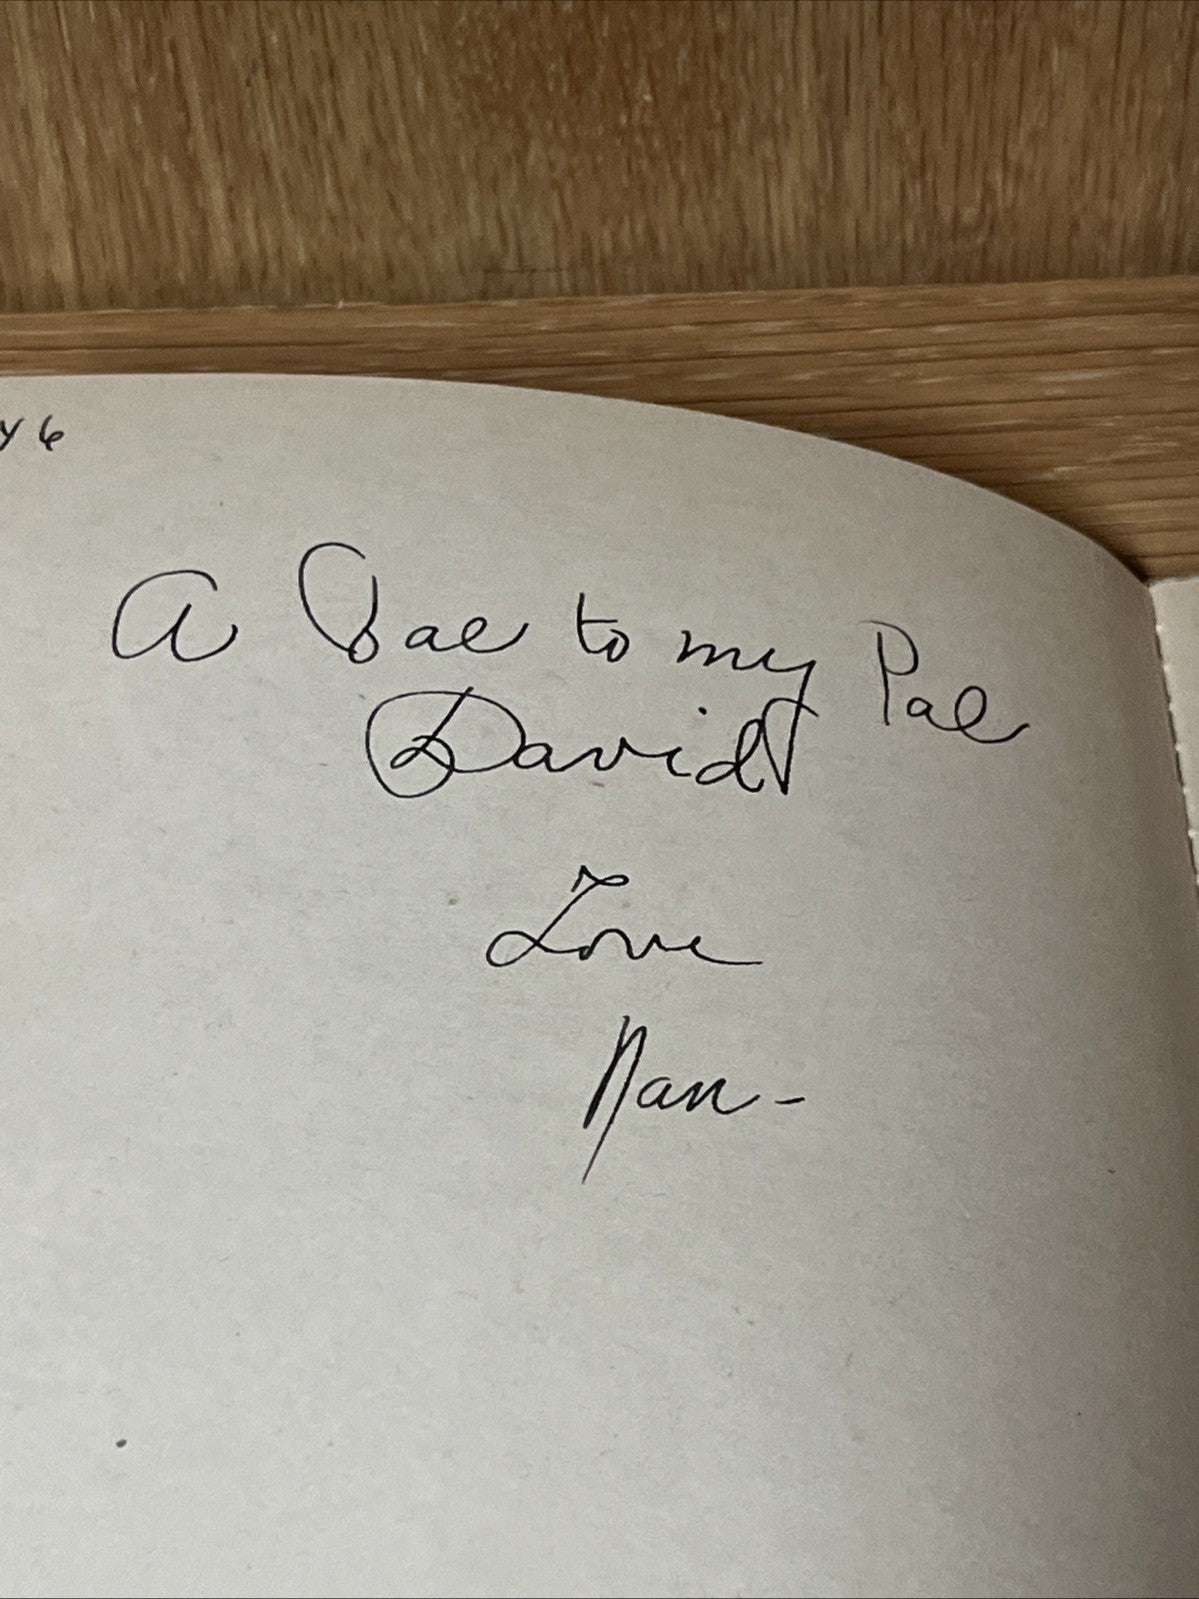 y 6
A to my Pal
David
Love
Nan -